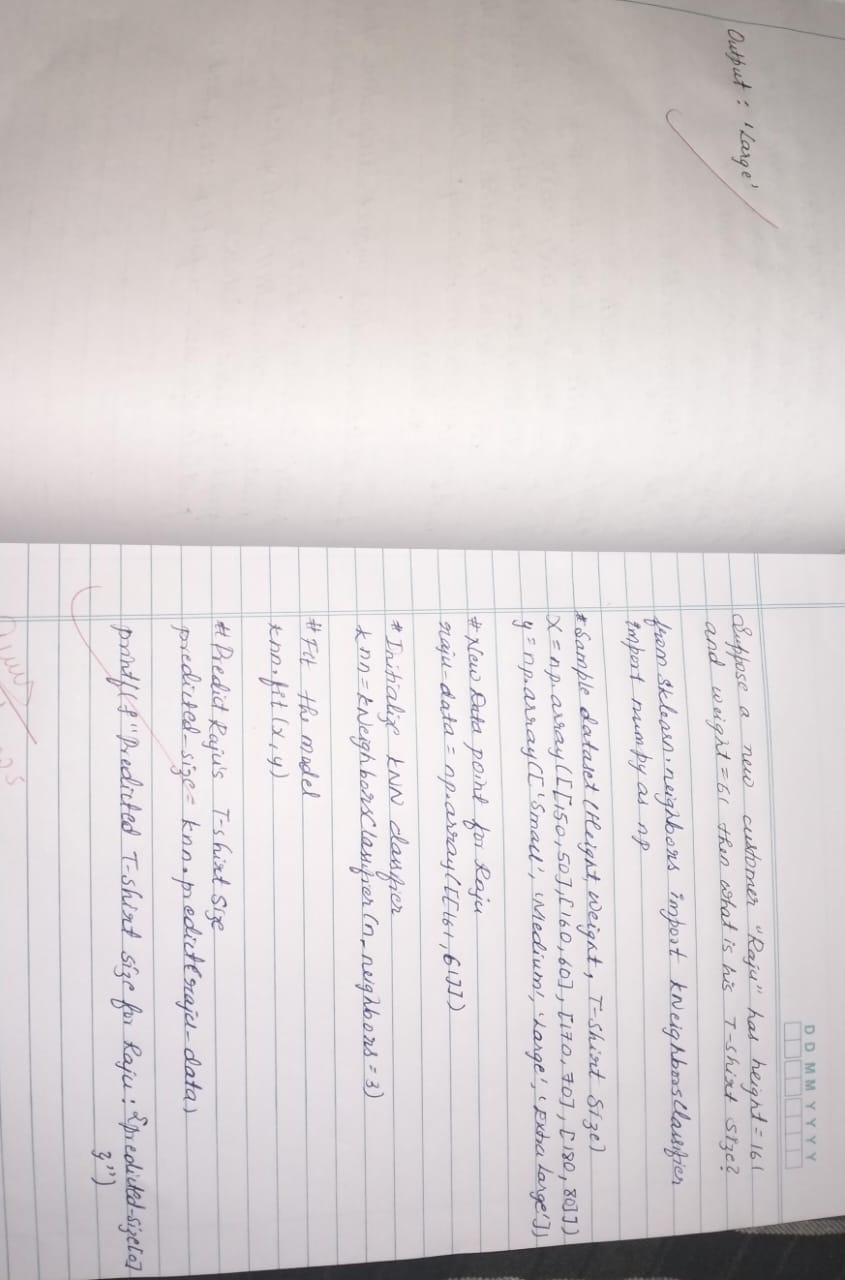 Output : 'Large'
DD MM YYYY
Suppose a new customer "Raju" has height = 161
and weight = 61 then what is his T-shirt Size?
from sklearn.neighbors import kNeighborsClassifier
import numpy as np
# Sample dataset (Height, Weight, T-Shirt Size)
X = np.array([[150,50],[160,60],[170,70],[180,80]])
y = np.array(['Small', 'Medium', 'Large', 'Extra Large'])
# New Data point for Raju
raju-data = np.array([[161,61]])
# Initialize kNN classifier
knn = kNeighborsClassifier(n_neighbors = 3)
# Fit the model
knn.fit(x,y)
# Predict Raju's T-shirt Size
predicted-size = knn.predict(raju-data)
printf(f"Predicted T-shirt size for Raju : {predicted-size[0]
}")